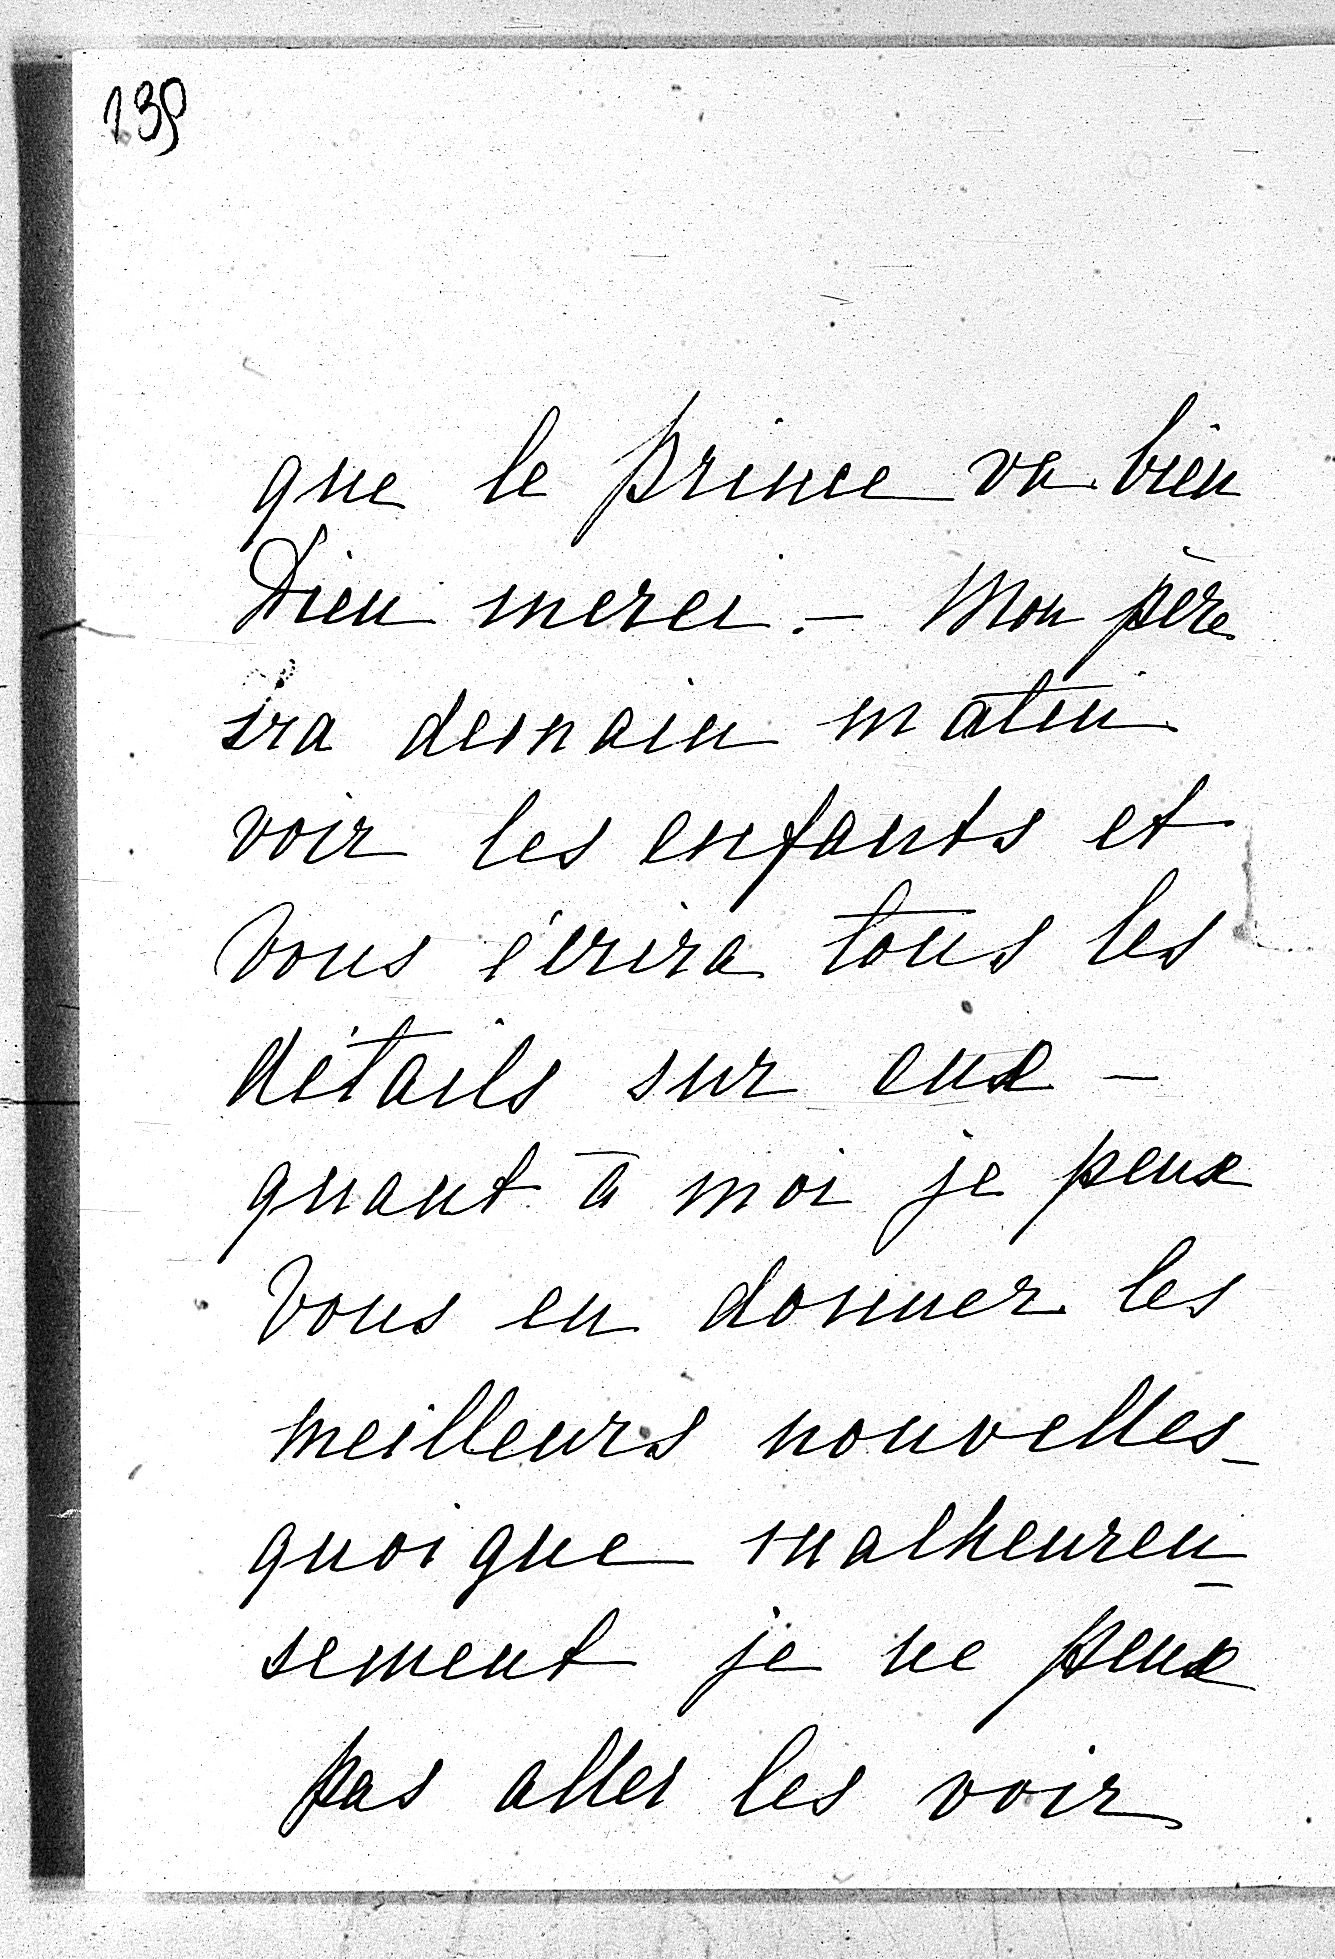 139
que le prince va bien
Dieu merci. — Mon père
ira demain matin
voir les enfants et
vous écrira tous les
détails sur eux —
quant à moi je peux
vous en donner les
meilleurs nouvelles —
quoique malheureu-
sement je ne peux
pas aller les voir